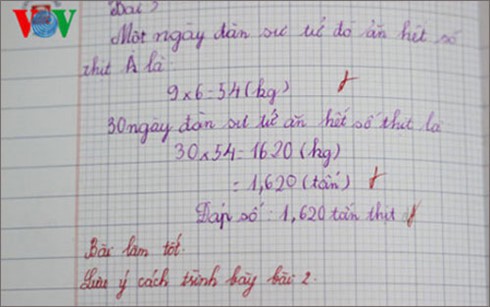 VOV
Bài 2
Một ngày đàn sư tử đó ăn hết số
thịt À là:
9 x 6 = 54 (kg)
30 ngày đàn sư tử ăn hết số thịt là
30 x 54 = 1620 (kg)
= 1,620 (tấn)
Đáp số: 1,620 tấn thịt
Bài làm tốt.
Lưu ý cách trình bày bài 2.